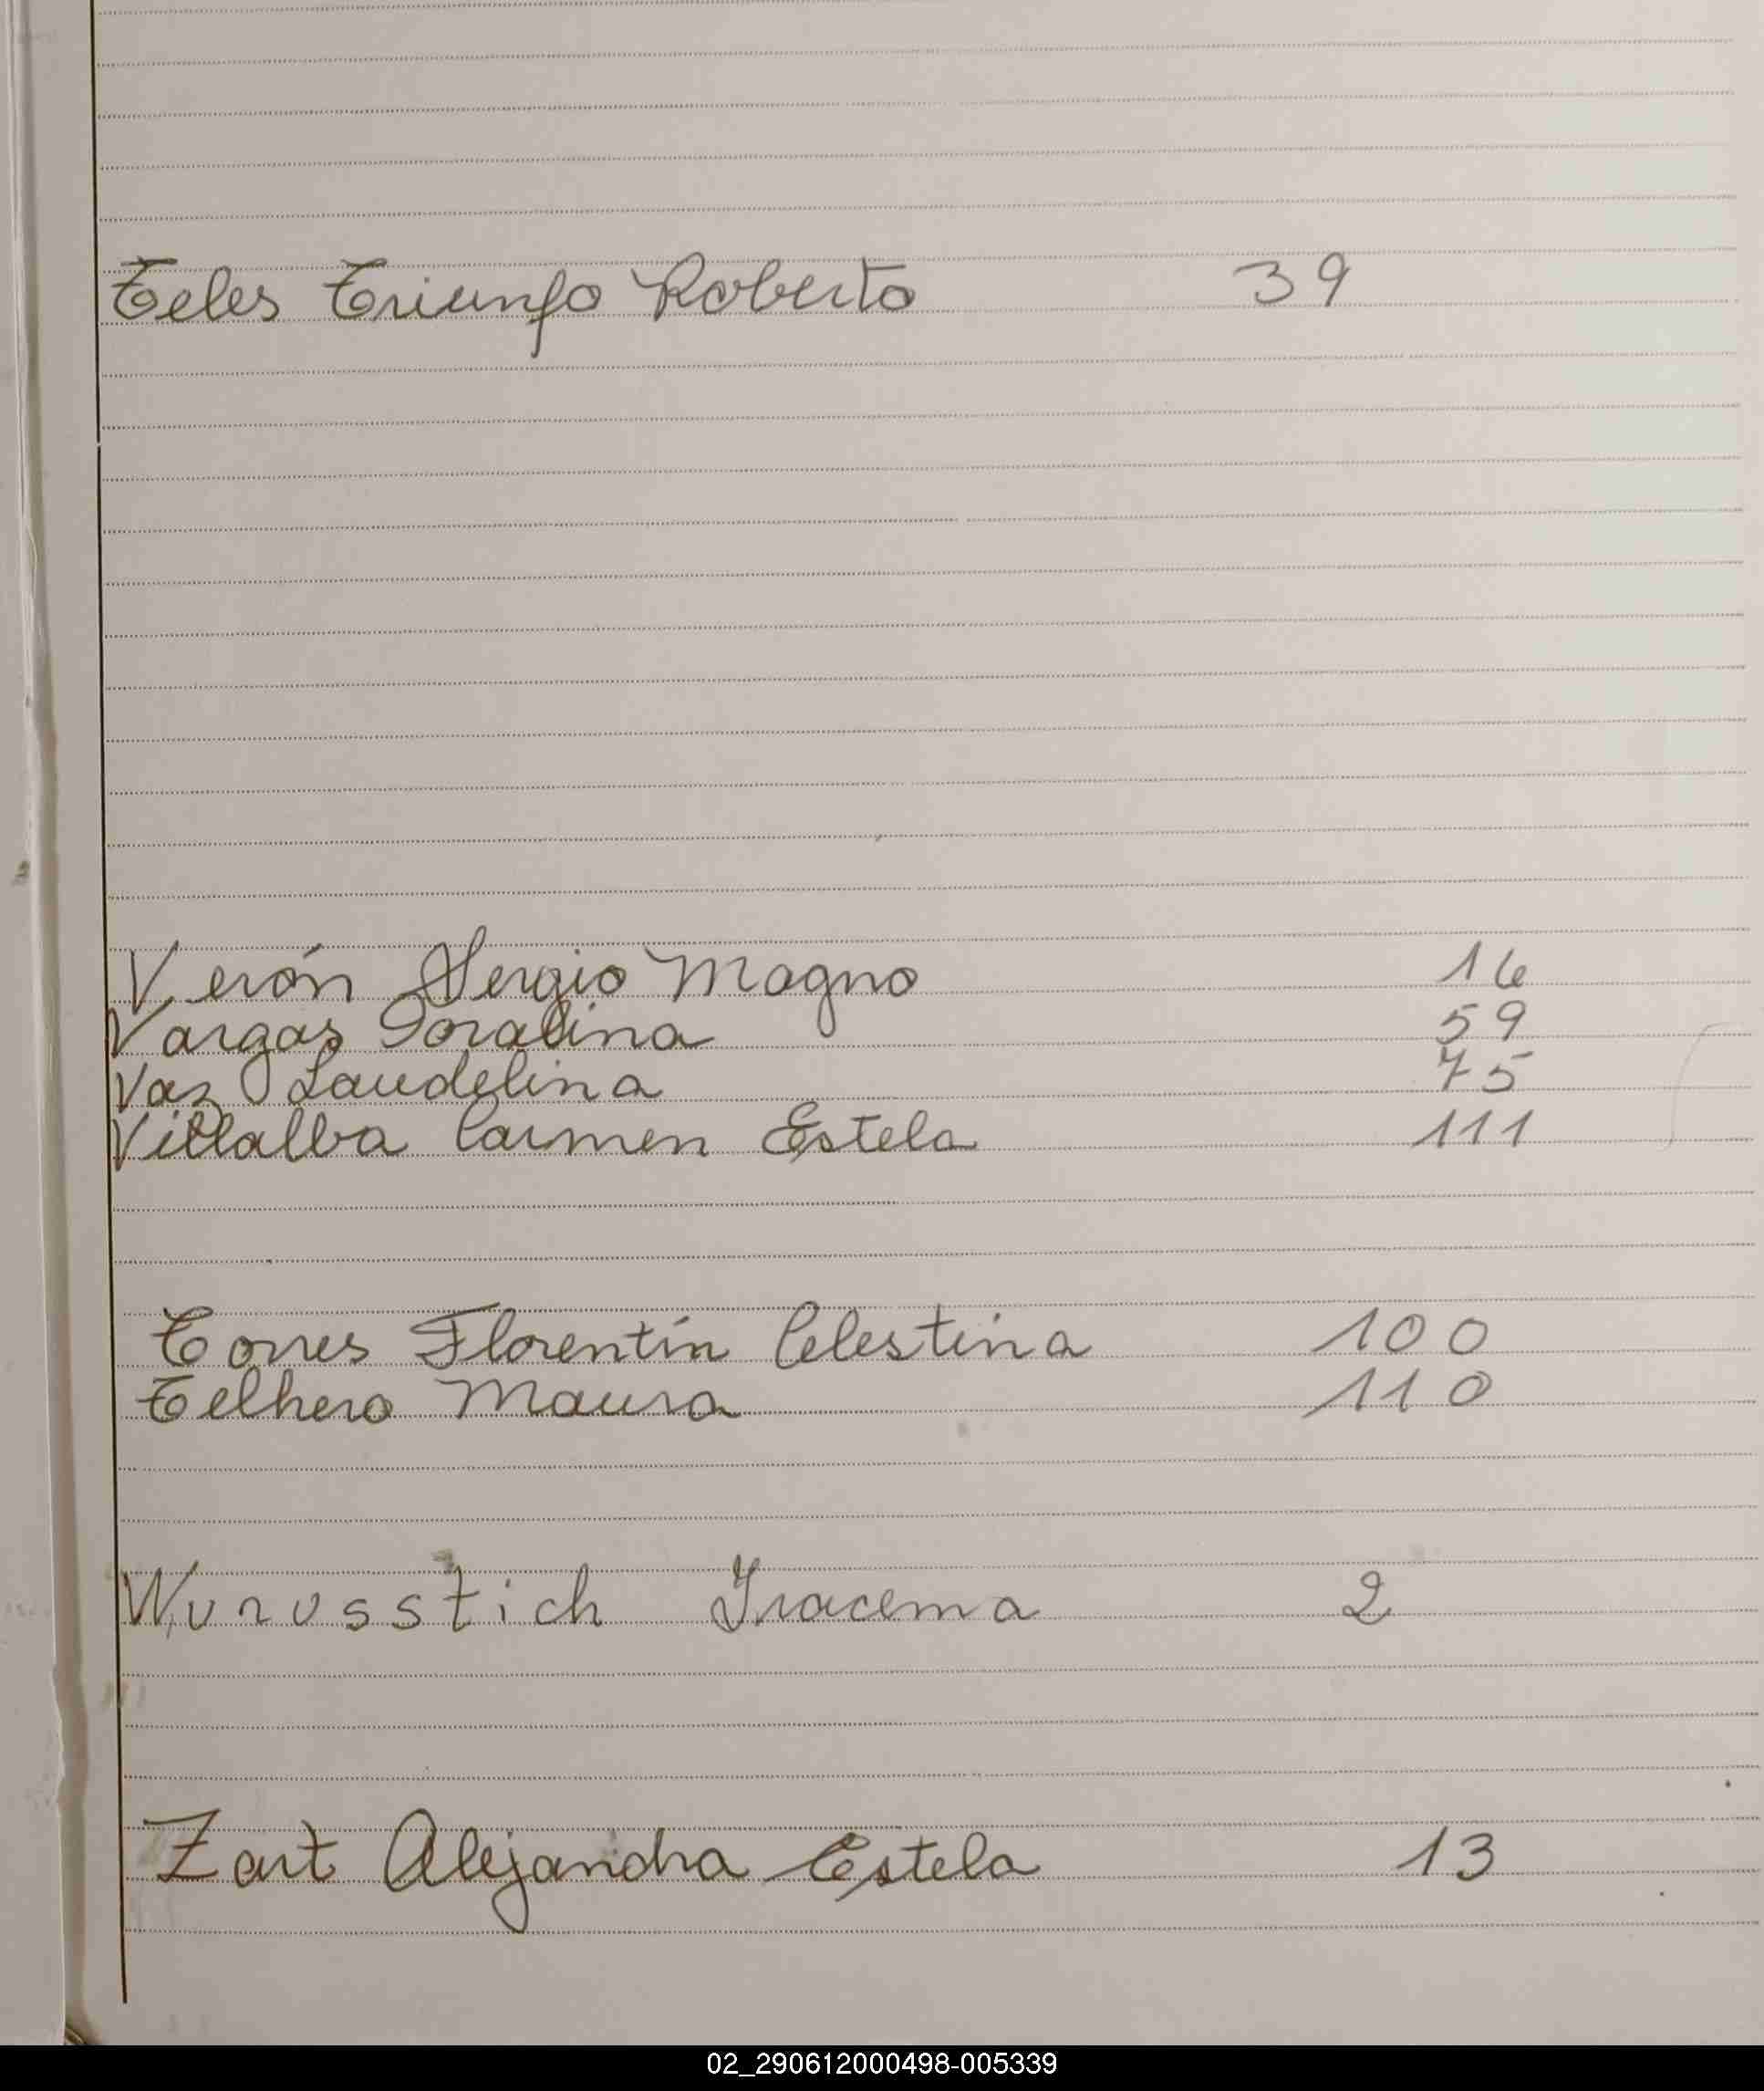 Teles Triunfo Roberto 39
Verón Sergio Magno 16
Vargas Doralina 59
Vaz Laudelina 75
Villalba Carmen Estela 111
Torres Florentín Celestina 100
Telhero Maura 110
Wurusstich Iracema 2
Zart Alejandra Estela 13
02_290612000498-005339